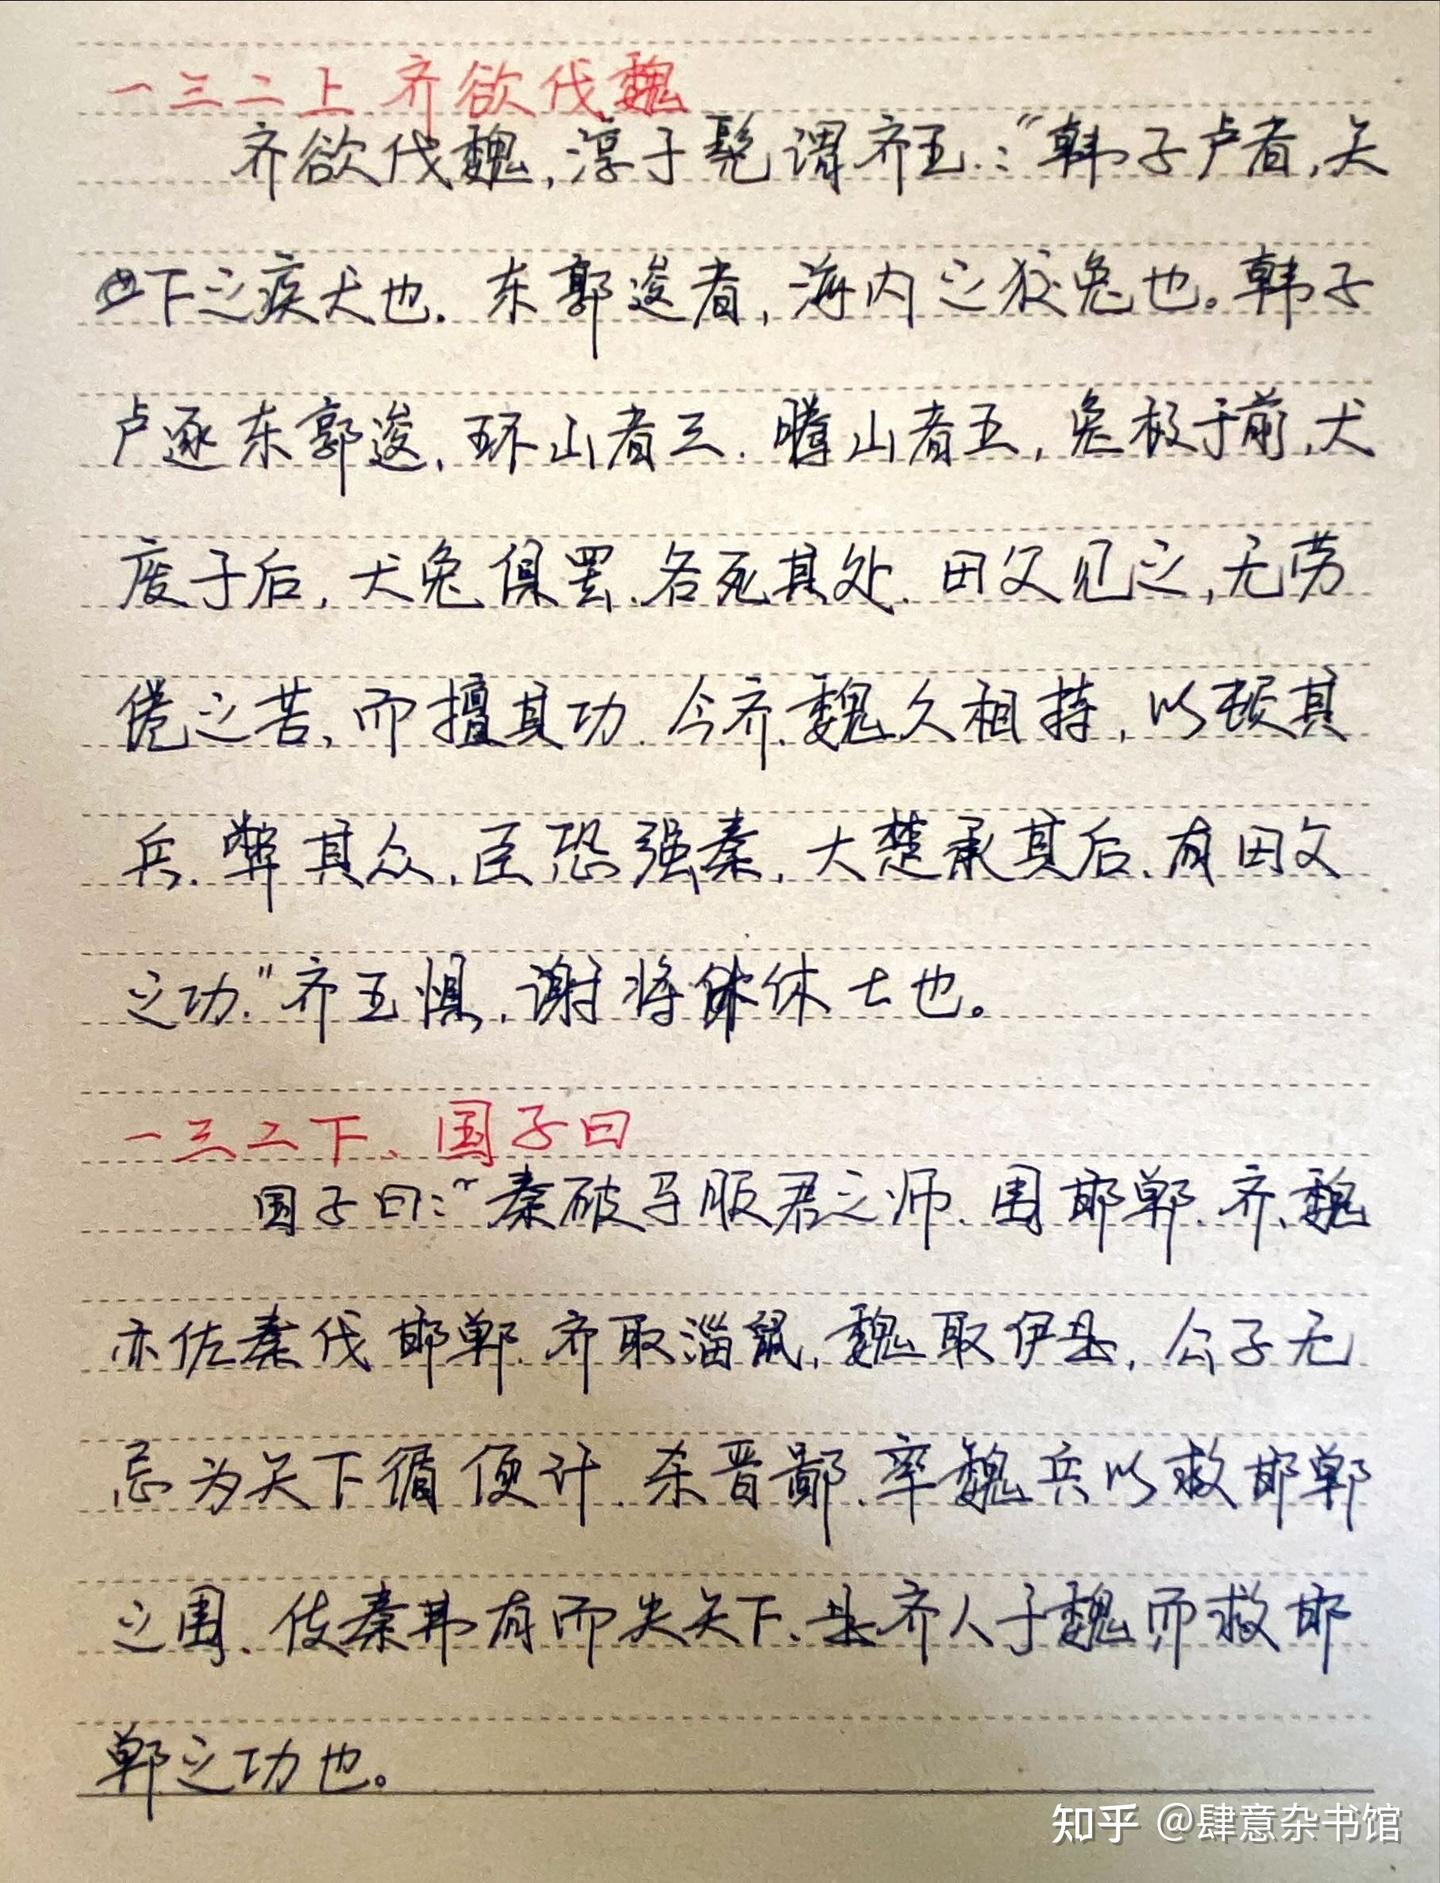 一三二上 齐欲伐魏
齐欲伐魏，淳于髡谓齐王：“韩子卢者，天
下之疾犬也．东郭逡者，海内之狡兔也。韩子
卢逐东郭逡，环山者三．腾山者五，兔极于前，犬
废于后，犬兔俱罢．各死其处．田父见之，无劳
倦之苦，而擅其功．今齐、魏久相持，以顿其
兵．弊其众，臣恐强秦，大楚承其后．有田父
之功．”齐王惧．谢将休士也。
一三二下、国子曰
国子曰：“秦破马服君之师．围邯郸．齐、魏
亦佐秦伐邯郸．齐取淄鼠，魏取伊是，公子无
忌为天下循便计．杀晋鄙．率魏兵以救邯郸
之围．使秦弗有而失天下．是齐入于魏而救邯
郸之功也。
知乎 @肆意杂书馆